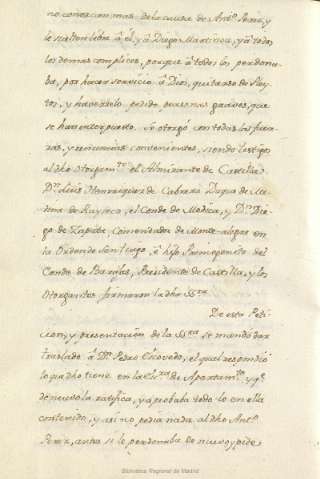 no conozcan mas de la causa de Antº. Perez, y
le suelten libre â el, y â Diego Martinez, y â todos
los demas complices, porque â todos los perdona-
ba, por hacer servicio â Dios, quitarse de Pley-
tos, y haverselo pedido personas graves, que
se han interpuesto. Se otorgó con todas las fuer-
zas, y renuncias convenientes, siendo testigos
al dho otorgamto. el Almirante de Castilla
Dn. Luis Henrriquez de Cabrera Duque de Me-
dina de Rayseco, el Conde de Modica, y Dn. Die-
go de Zapata, Comendador de Monte-alegre en
la Orden de Santiago ê hijo Primogenito del
Conde de Barajas, Presidente de Castilla, y los
Otorgantes firmaron la dha SSra
De esta Peti-
cion, y presentacion de la SSra se mandó dar
traslado â Dn. Pedro Escovedo, el qual respondió
lo que dho tiene en la de Apartamto. y qe.
de nuevo la ratifica, y aprobaba todo lo en ella
contenido, y asi no pedia nada al dho Antº.
Perez, antes si le perdonaba de nuevo, y pide
Biblioteca Regional de Madrid